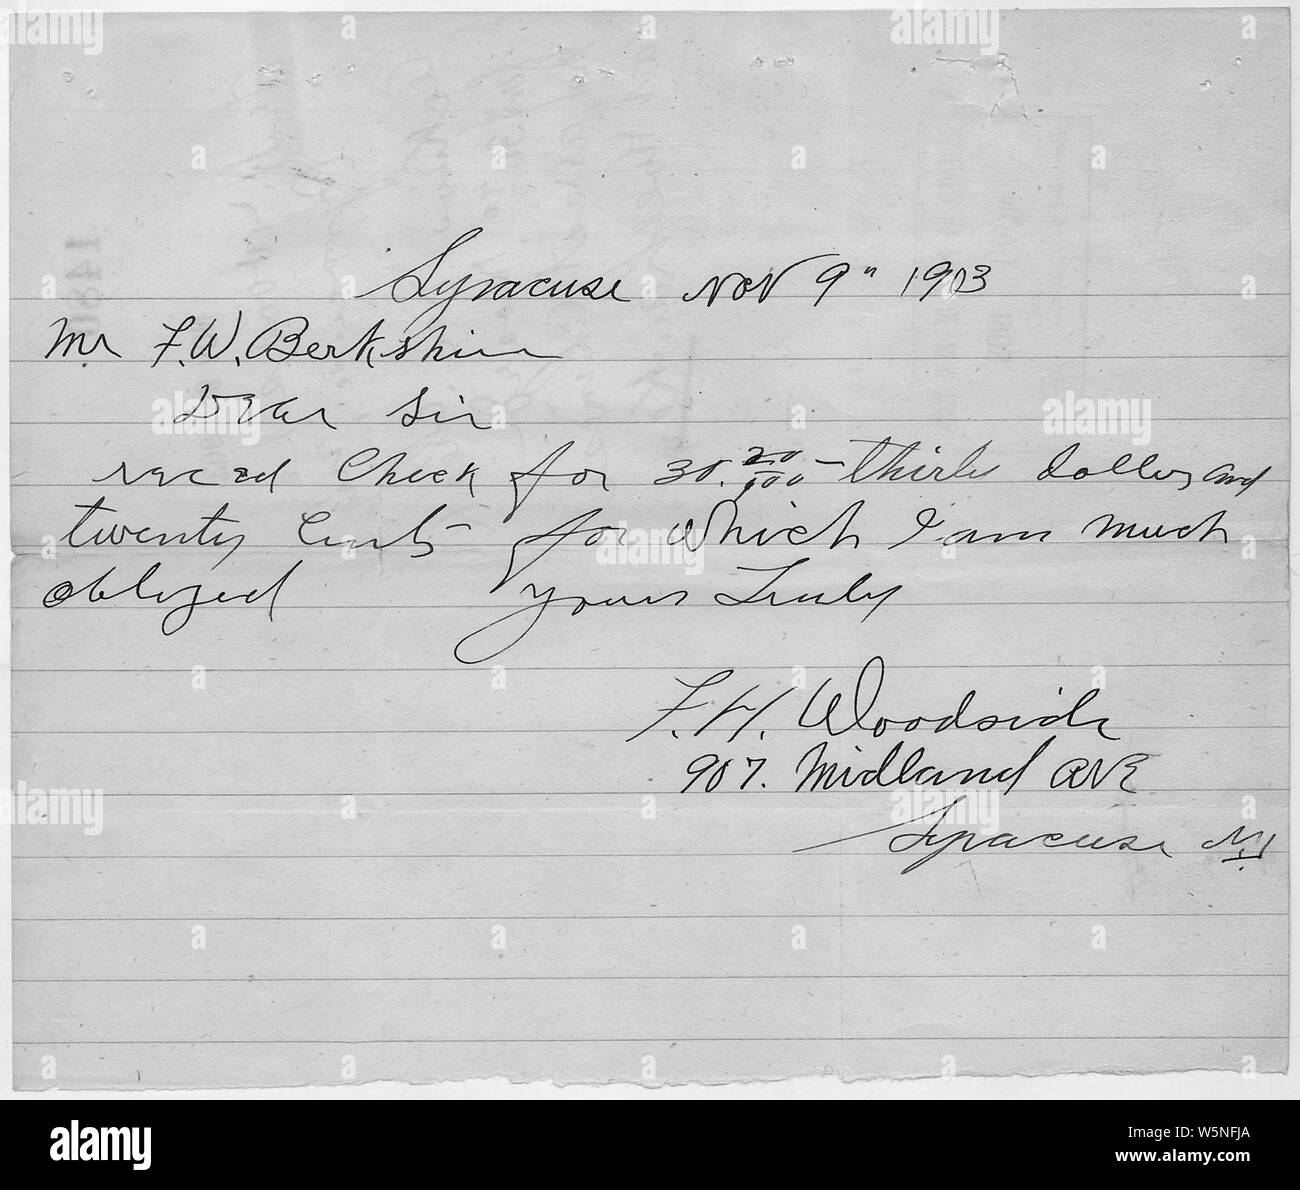 Syracuse Nov 9" 1903
Mr F.W. Berkshire
Dear Sir
recad Check for 30. 20/100 - thirty dollars and
twenty Cents for which I am much
oblezed yours Truly
F.H. Woodside
907. Midland AVE
Syracuse NY
alamy
Image ID: W5NFJA
www.alamy.com